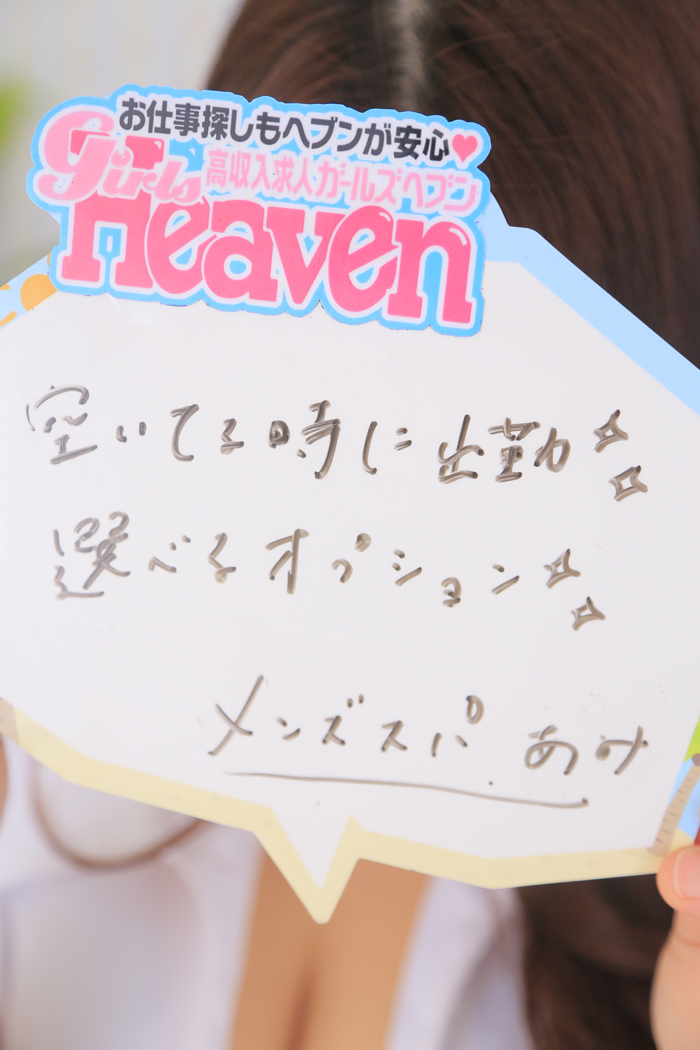 お仕事探しもヘブンが安心♥
高収入求人ガールズヘブン
girls
Heaven
空いてる時に出勤
選べるオプション
メンズスパ あみ